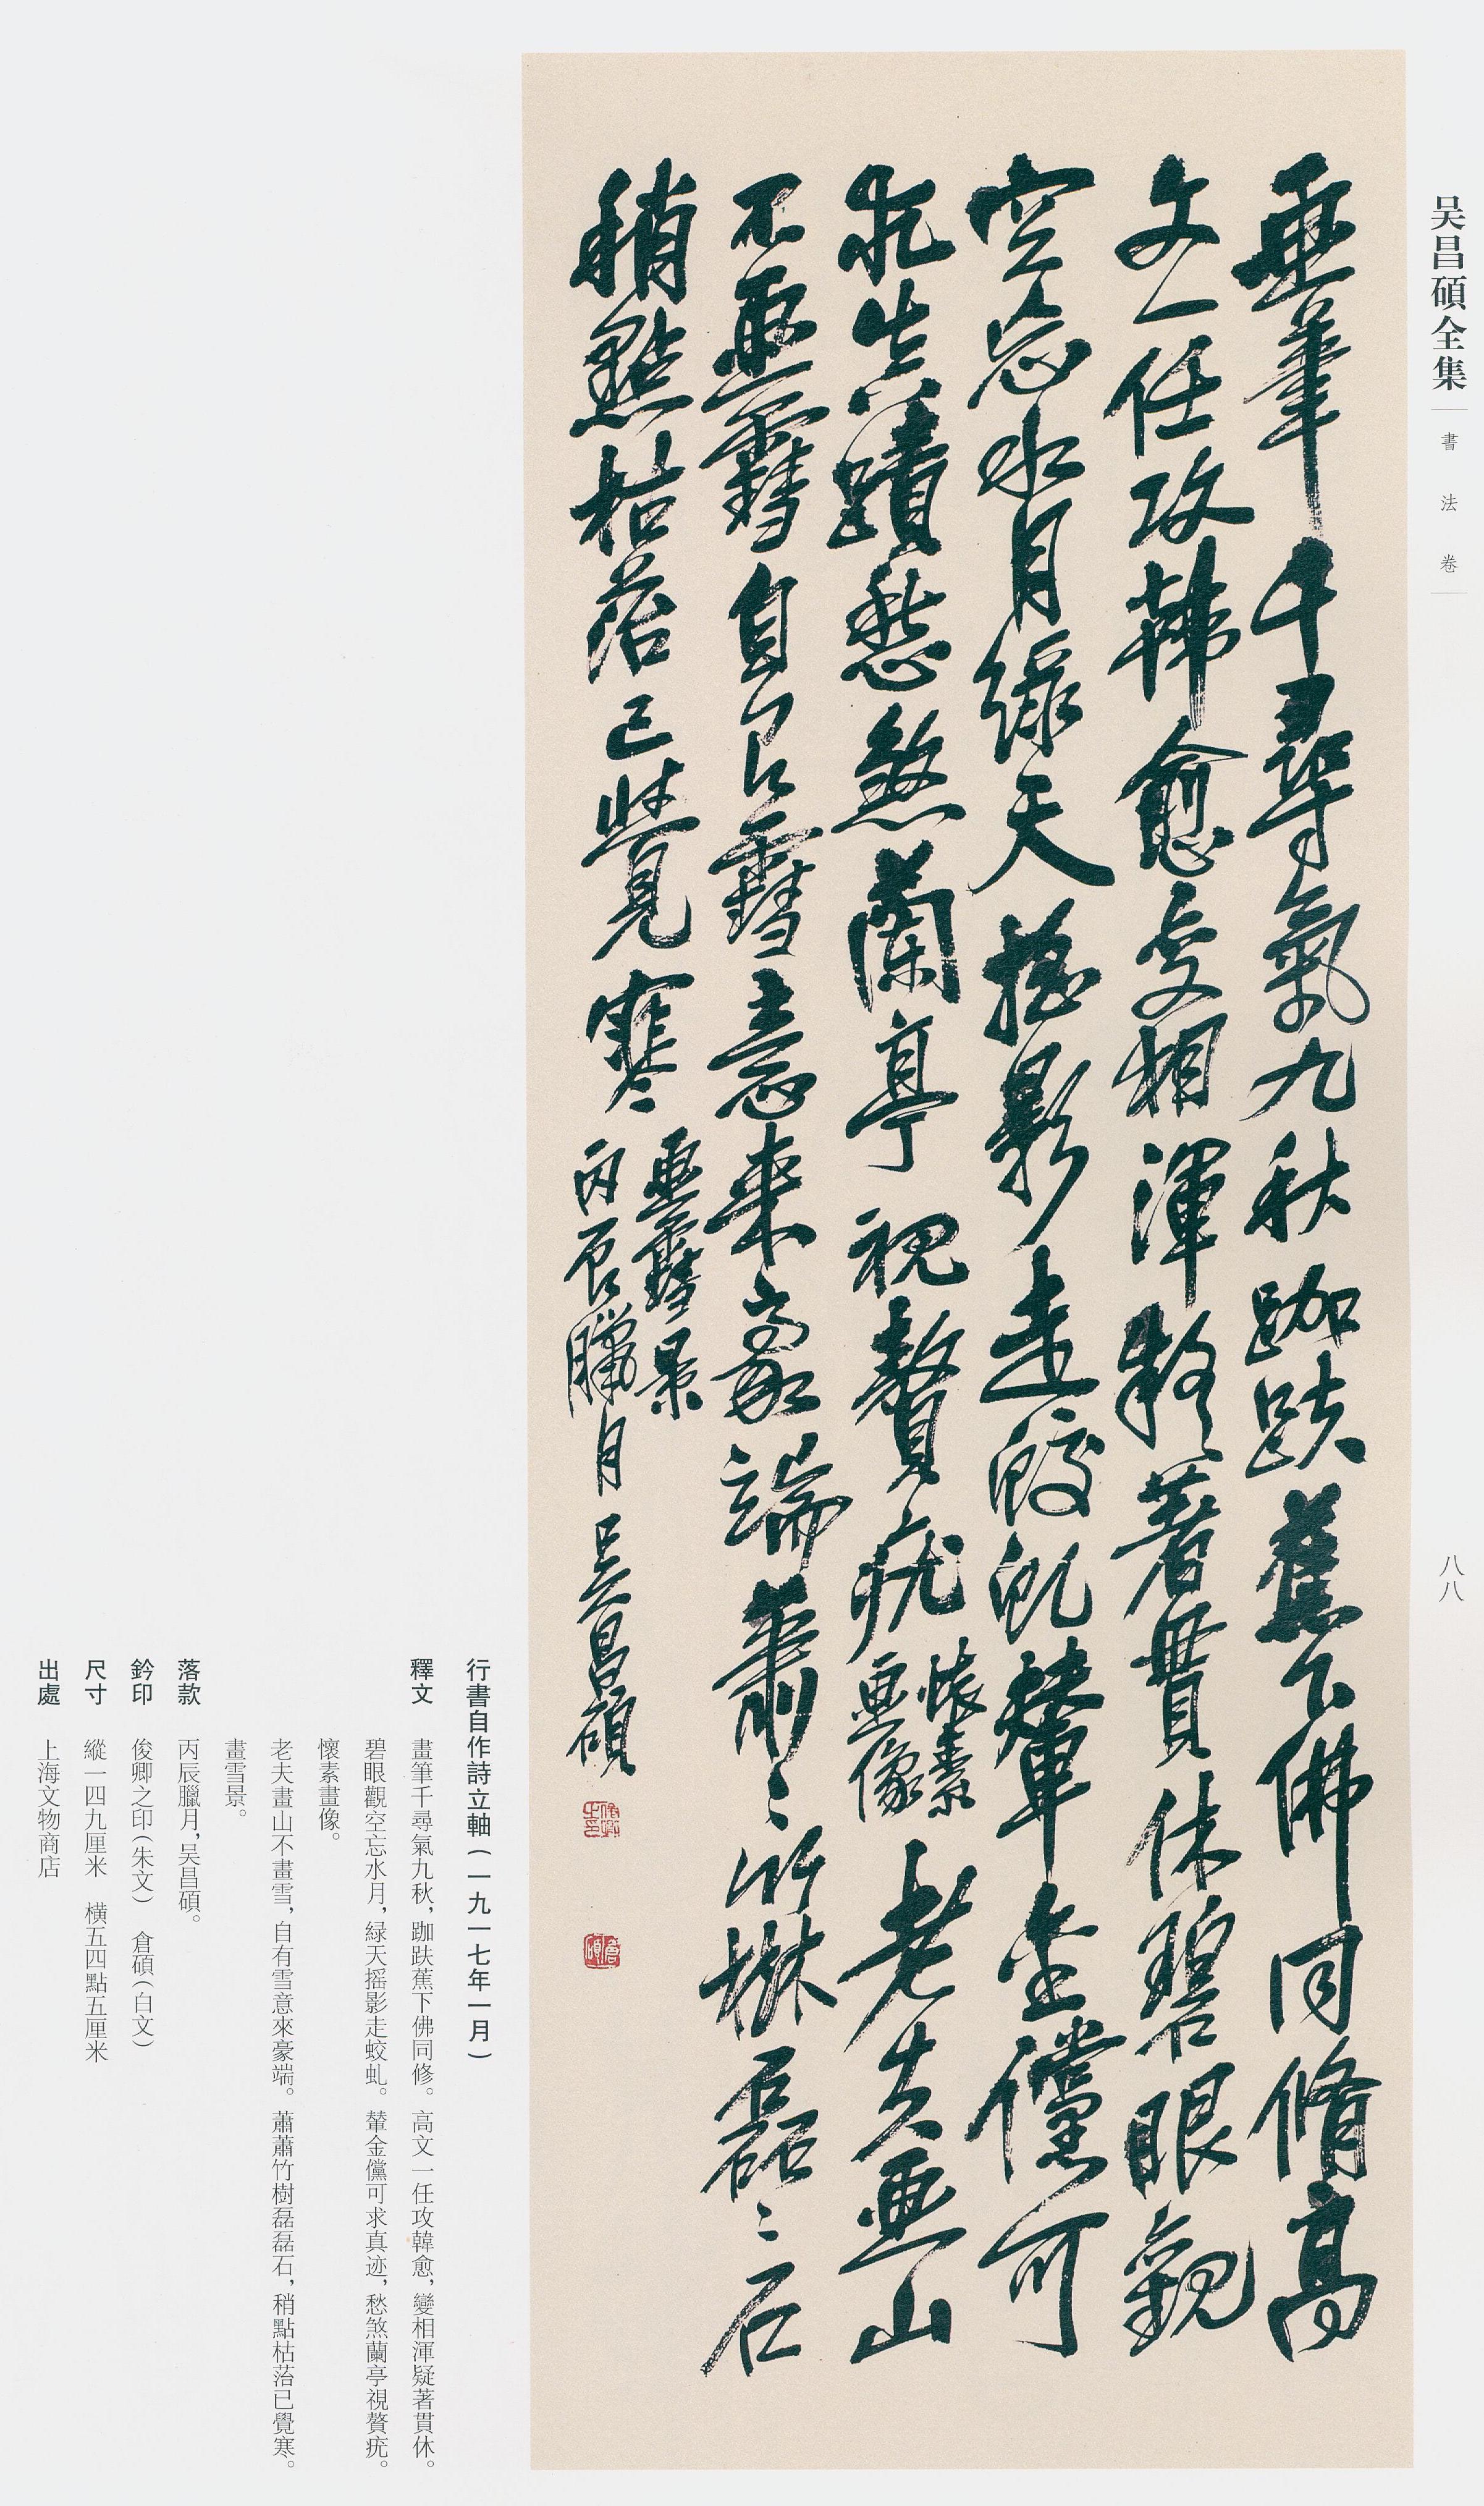 吴昌碩全集
書法卷
八八
畫筆千尋氣九秋跏趺蕉下佛同脩高
文一任攻韓愈變相渾疑著貫休碧眼觀
空忘水月緑天摇影走蛟虬輦金儻可
求真蹟愁煞蘭亭視贅疣
懷素
畫像
老夫畫山
不畫雪自有雪意來豪端蕭〻竹樹磊〻石
稍點枯萡已覺寒
畫雪景
丙辰臘月吴昌碩
俊卿之印
倉碩
行書自作詩立軸(一九一七年一月)
釋文　畫筆千尋氣九秋，跏趺蕉下佛同修。高文一任攻韓愈，變相渾疑著貫休。
碧眼觀空忘水月，緑天摇影走蛟虬。輦金儻可求真迹，愁煞蘭亭視贅疣。
懷素畫像。
老夫畫山不畫雪，自有雪意來豪端。蕭蕭竹樹磊磊石，稍點枯萡已覺寒。
畫雪景。
落款　丙辰臘月，吴昌碩。
鈐印　俊卿之印(朱文)　倉碩(白文)
尺寸　縱一四九厘米　横五四點五厘米
出處　上海文物商店